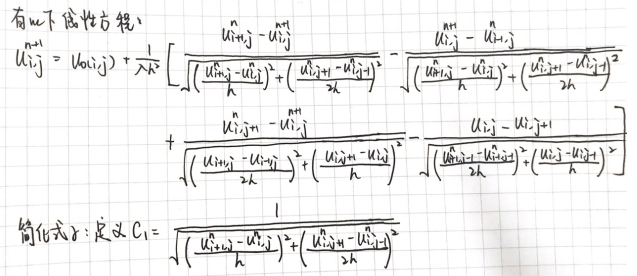 有如下线性方程:
$u_{i,j}^{n+1} = u_0(i,j) + \frac{1}{\lambda h^2} \left[ \frac{u_{i+1,j}^{n} - u_{i,j}^{n+1}}{\sqrt{\left(\frac{u_{i+1,j}^{n} - u_{i,j}^{n}}{h}\right)^2 + \left(\frac{u_{i,j+1}^{n} - u_{i,j-1}^{n}}{2h}\right)^2}} - \frac{u_{i,j}^{n+1} - u_{i-1,j}^{n}}{\sqrt{\left(\frac{u_{i+1,j}^{n} - u_{i,j}^{n}}{h}\right)^2 + \left(\frac{u_{i,j+1}^{n} - u_{i,j-1}^{n}}{2h}\right)^2}} \right.$
$\left. + \frac{u_{i,j+1}^{n} - u_{i,j}^{n+1}}{\sqrt{\left(\frac{u_{i+1,j} - u_{i-1,j}}{2h}\right)^2 + \left(\frac{u_{i,j+1} - u_{i,j}}{h}\right)^2}} - \frac{u_{i,j} - u_{i,j+1}}{\sqrt{\left(\frac{u_{i+1,j-1}^{n} - u_{i-1,j-1}^{n}}{2h}\right)^2 + \left(\frac{u_{i,j} - u_{i,j-1}}{h}\right)^2}} \right]$
简化式子:定义 $C_1 = \frac{1}{\sqrt{\left(\frac{u_{i+1,j}^{n} - u_{i,j}^{n}}{h}\right)^2 + \left(\frac{u_{i,j+1}^{n} - u_{i,j-1}^{n}}{2h}\right)^2}}$